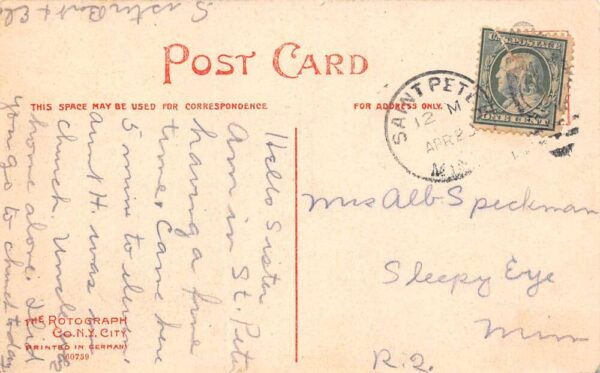 POST CARD
THIS SPACE MAY BE USED FOR CORRESPONDENCE.
FOR ADDRESS ONLY.
Hello Sister
Am in St. Peter
having a fine
time. Came here
5 min to eleven.
aunt H. was in
church. Uncle
home alone. Did
you go to church today
Sister
SAINT PETE
12 M
APR 25
MIN
U.S. POSTAGE
ONE CENT
Mrs Alb Speckman
Sleepy Eye
Minn
R. 2.
THE ROTOGRAPH
CO. N.Y. CITY
PRINTED IN GERMANY
60759